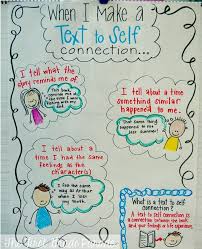 When I Make a
Text to Self
connection...
I tell what the
story reminds me of
This book
reminds me of
the time I was
I tell about a time
something similar
happened to me.
That same thing
happened to me
last summer!
I tell about a
time I had the same
feelings as the
character(s)
I felt the same
way as Arthur
when I lost
What is a text to self
connection?
A text to self connection is
a connection between the
book and your feelings or life experiences.